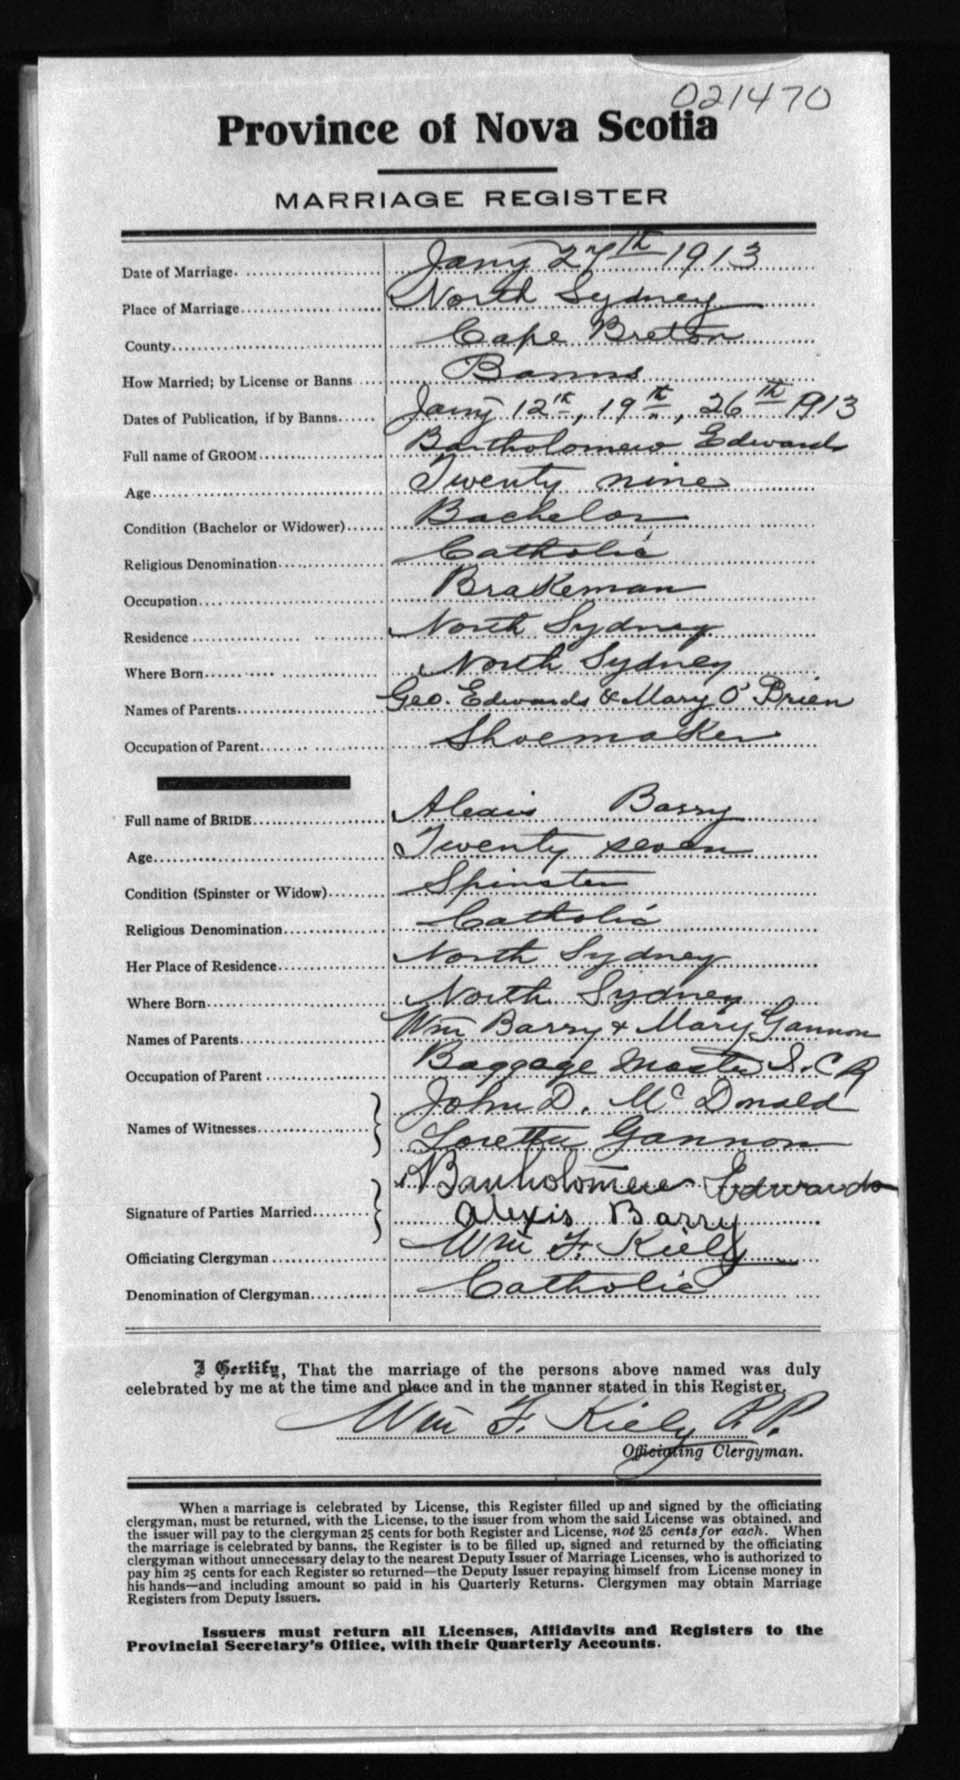 021470
Province of Nova Scotia
MARRIAGE REGISTER
Date of Marriage. Jany 27th 1913
Place of Marriage North Sydney
County Cape Breton
How Married; by License or Banns Banns
Dates of Publication, if by Banns Jany 12th, 19th, 26th 1913
Full name of GROOM Bartholomew Edwards
Age Twenty nine
Condition (Bachelor or Widower) Bachelor
Religious Denomination Catholic
Occupation Brakeman
Residence North Sydney
Where Born North Sydney
Names of Parents Geo. Edwards & Mary O'Brien
Occupation of Parent Shoemaker
Full name of BRIDE Alexis Barry
Age Twenty seven
Condition (Spinster or Widow) Spinster
Religious Denomination Catholic
Her Place of Residence North Sydney
Where Born North Sydney
Names of Parents Wm Barry & Mary Gannon
Occupation of Parent Baggage Master I.C R
Names of Witnesses John D. McDonald
Loretta Gannon
Signature of Parties Married Bartholomew Edwards
Alexis Barry
Officiating Clergyman Wm F. Kiely
Denomination of Clergyman Catholic
I Certify, That the marriage of the persons above named was duly
celebrated by me at the time and place and in the manner stated in this Register.
Wm F. Kiely P.P.
Officiating Clergyman.
When a marriage is celebrated by License, this Register filled up and signed by the officiating
clergyman, must be returned, with the License, to the issuer from whom the said License was obtained, and
the issuer will pay to the clergyman 25 cents for both Register and License, not 25 cents for each. When
the marriage is celebrated by banns, the Register is to be filled up, signed and returned by the officiating
clergyman without unnecessary delay to the nearest Deputy Issuer of Marriage Licenses, who is authorized to
pay him 25 cents for each Register so returned—the Deputy Issuer repaying himself from License money in
his hands—and including amount so paid in his Quarterly Returns. Clergymen may obtain Marriage
Registers from Deputy Issuers.
Issuers must return all Licenses, Affidavits and Registers to the
Provincial Secretary's Office, with their Quarterly Accounts.